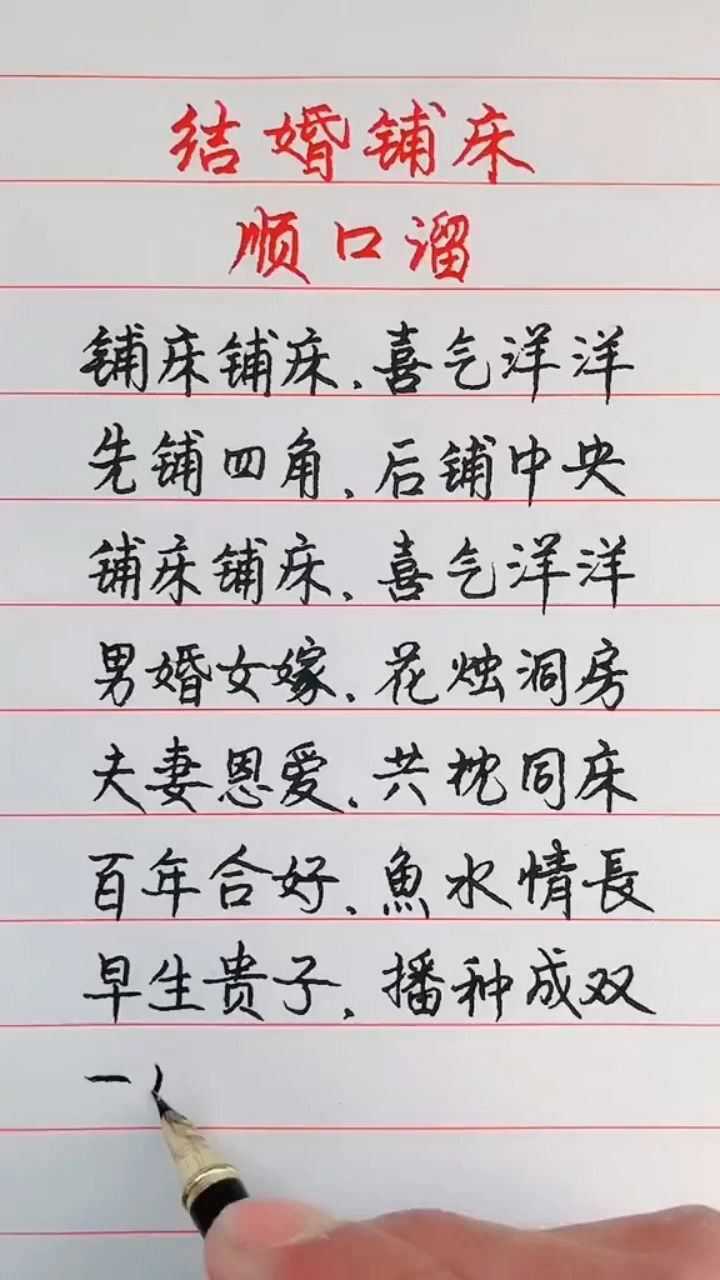 结婚铺床
顺口溜
铺床铺床,喜气洋洋
先铺四角,后铺中央
铺床铺床,喜气洋洋
男婚女嫁,花烛洞房
夫妻恩爱,共枕同床
百年合好,魚水情長
早生贵子,播种成双
一